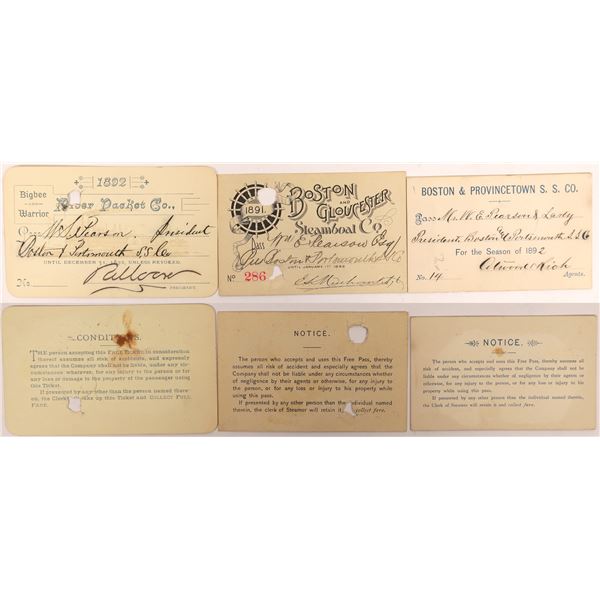 1892
Bigbee
and
Warrior
River Packet Co.,
Pass W. E. Pearson, President
Boston & Portsmouth S S Co
UNTIL DECEMBER 31, 1892, UNLESS REVOKED.
No.
PRESIDENT.
1891.
BOSTON
AND
GLOUCESTER
Steamboat Co.
Pass Wm E Pearson Esq
Pres Boston & Portsmouth S.S. Co
UNTIL JANUARY 1ST 1892
No 286
BOSTON & PROVINCETOWN S. S. CO.
Pass Mr. W. E. Pearson & Lady
President, Boston & Portsmouth S. S. Co
For the Season of 1892
Atwood & Rich
No. 14.
Agents.
CONDITIONS.
THE person accepting this FREE TICKET in consideration
thereof assumes all risk of accidents, and expressly
agrees that the Company shall not be liable, under any cir-
cumstances whatever, for any injury to the person or for
any loss or damage to the property of the passenger using
this Ticket.
If presented by any other than the person named there-
on, the Clerk will take up this Ticket and COLLECT FULL
FARE.
NOTICE.
The person who accepts and uses this Free Pass, thereby
assumes all risk of accident and especially agrees that the
Company shall not be liable under any circumstances whether
of negligence by their agents or otherwise, for any injury to
the person, or for any loss or injury to his property while
using this pass.
If presented by any other person than the individual named
therein, the clerk of Steamer will retain it, collect fare.
NOTICE.
The person who accepts and uses this Free Pass, thereby assumes all risk
of accident, and especially agrees that the Company shall not be liable under
any circumstances whether of negligence by their agents or otherwise, for any
injury to the person, or for any loss or injury to his property while using
this pass.
If presented by any other person than the individual named therein, the
Clerk of Steamer will retain it and collect fare.